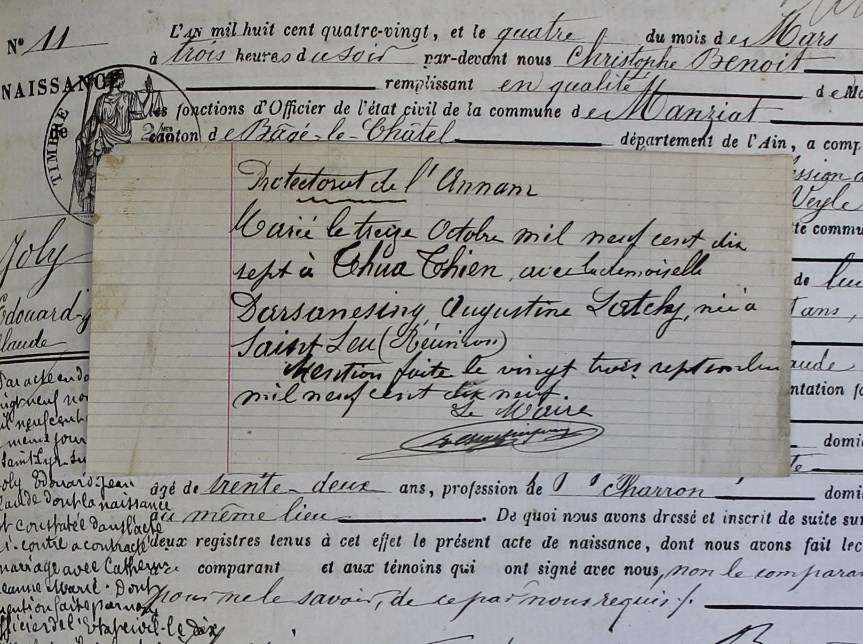 L'AN mil huit cent quatre-vingt, et le quatre du mois de Mars
N° 11
à trois heures du soir par-devant nous Christophe Benoit
NAISSANCE
remplissant en qualité de Ma
les fonctions d'Officier de l'état civil de la commune de Manziat
TIMBRE
canton de Bâgé-le-Châtel département de l'Ain, a comp
Protectorat de l'Annam
Marié le treize Octobre mil neuf cent dix
sept à Thua Thien, avec la demoiselle
Darsanesing Augustine Latchy, née à
Saint Leu (Réunion)
Mention faite le vingt trois septembre
mil neuf cent dix neuf.
Le Maire
ssion
Veyle
te commu
de leu
ans,
aude
ntation
domi
Joly
Edouard-J
Claude
Par acte en da
vingt neuf no
mil neuf cent
même jour
Saint Cyr su
Joly Edouard Jean
Claude dont la naissance
est constatée dans l'acte
ci-contre a contracté
mariage avec Catherine
Jeanne Marie. Dont
mention faite par nous
officier de l'Etat civil le dix
âgé de trente-deux ans, profession de Charron domi
au même lieu. De quoi nous avons dressé et inscrit de suite su
deux registres tenus à cet effet le présent acte de naissance, dont nous avons fait lec
comparant et aux témoins qui ont signé avec nous, non le comparan
pour ne le savoir, de ce par nous requis.